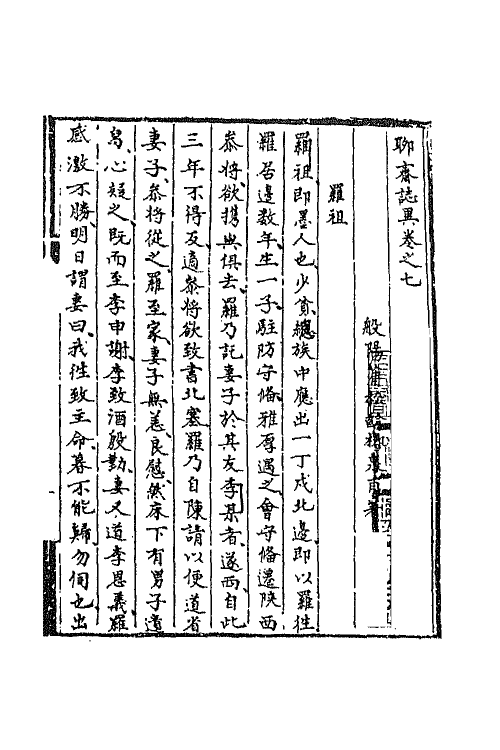 聊齋誌異卷之七
般陽
羅祖
羅祖即墨人也少貧總族中應出一丁戍北邊即以羅徃
羅居邊数年生一子駐防守俻雅厚遇之會守俻遷陝西
叅将欲携與俱去羅乃託妻子於其友李某者遂西自此
三年不得反適叅将欲致書北塞羅乃自陳請以便道省
妻子叅将從之羅至家妻子無恙良慰然床下有男子遺
舄心疑之既而至李申謝李致酒殷勤妻又道李恩義羅
感激不勝明日謂妻曰我徃致主命暮不能歸勿伺也出